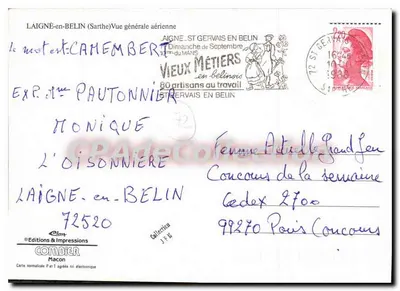 LAIGNE-en-BELIN (Sarthe) Vue générale aérienne
Le mot est CAMEMBERT
EXP. Mme PAUTONNIER
MONIQUE
L'OISONNIÈRE
LAIGNE-en-BELIN
72520
AIGNE. ST GERVAIS EN BELIN
Dimanche de Septembre
du MANS
VIEUX MÉTIERS
en belinois
60 artisans au travail
ST GERVAIS EN BELIN
72 ST GERVAIS
Femme Actuelle Grand Jeu
Concours de la semaine
Cedex 2700
99270 Paris Concours
Editions & Impressions
COMBIER
Macon
Carte normalisée P et T agréée
Collection